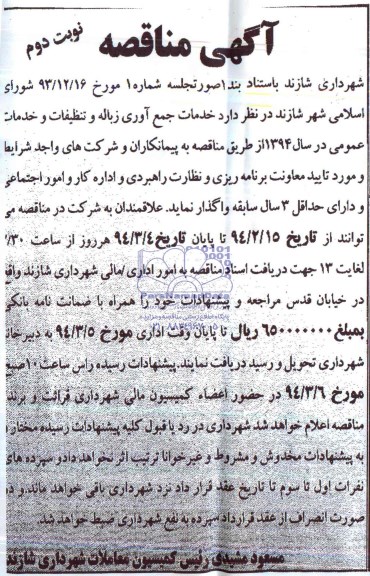 آگهی مناقصه
نوبت دوم
شهرداری شازند باستناد بند۱صورتجلسه شماره۱ مورخ ۹۳/۱۲/۱۶ شورای
اسلامی شهر شازند در نظر دارد خدمات جمع آوری زباله و تنظیفات و خدمات
عمومی در سال۱۳۹۴از طریق مناقصه به پیمانکاران و شرکت های واجد شرایط
و مورد تایید معاونت برنامه ریزی و نظارت راهبردی و اداره کار و امور اجتماعی
و دارای حداقل ۳ سال سابقه واگذار نماید. علاقمندان به شرکت در مناقصه می
توانند از تاریخ ۹۴/۲/۱۵ تا پایان تاریخ۹۴/۳/۴ هرروز از ساعت ۷/۳۰
لغایت ۱۳ جهت دریافت اسناد مناقصه به امور اداری/مالی شهرداری شازند واقع
در خیابان قدس مراجعه و پیشنهادات خود را همراه با ضمانت نامه بانکی
بمبلغ ۶۵۰۰۰۰۰۰۰ ریال تا پایان وقت اداری مورخ ۹۴/۳/۵ به دبیرخانه
شهرداری تحویل و رسید دریافت نمایند. پیشنهادات رسیده راس ساعت ۱۰صبح
مورخ ۹۴/۳/۶ در حضور اعضاء کمیسیون مالی شهرداری قرائت و برنده
مناقصه اعلام خواهد شد شهرداری در رد یا قبول کلیه پیشنهادات رسیده مختار و
به پیشنهادات مخدوش و مشروط و غیرخوانا ترتیب اثر نخواهد داد و سپرده های
نفرات اول تا سوم تا تاریخ عقد قرار داد نزد شهرداری باقی خواهد ماند. و در
صورت انصراف از عقد قرارداد سپرده به نفع شهرداری ضبط خواهد شد.
مسعود مشیدی رئیس کمیسیون معاملات شهرداری شازند